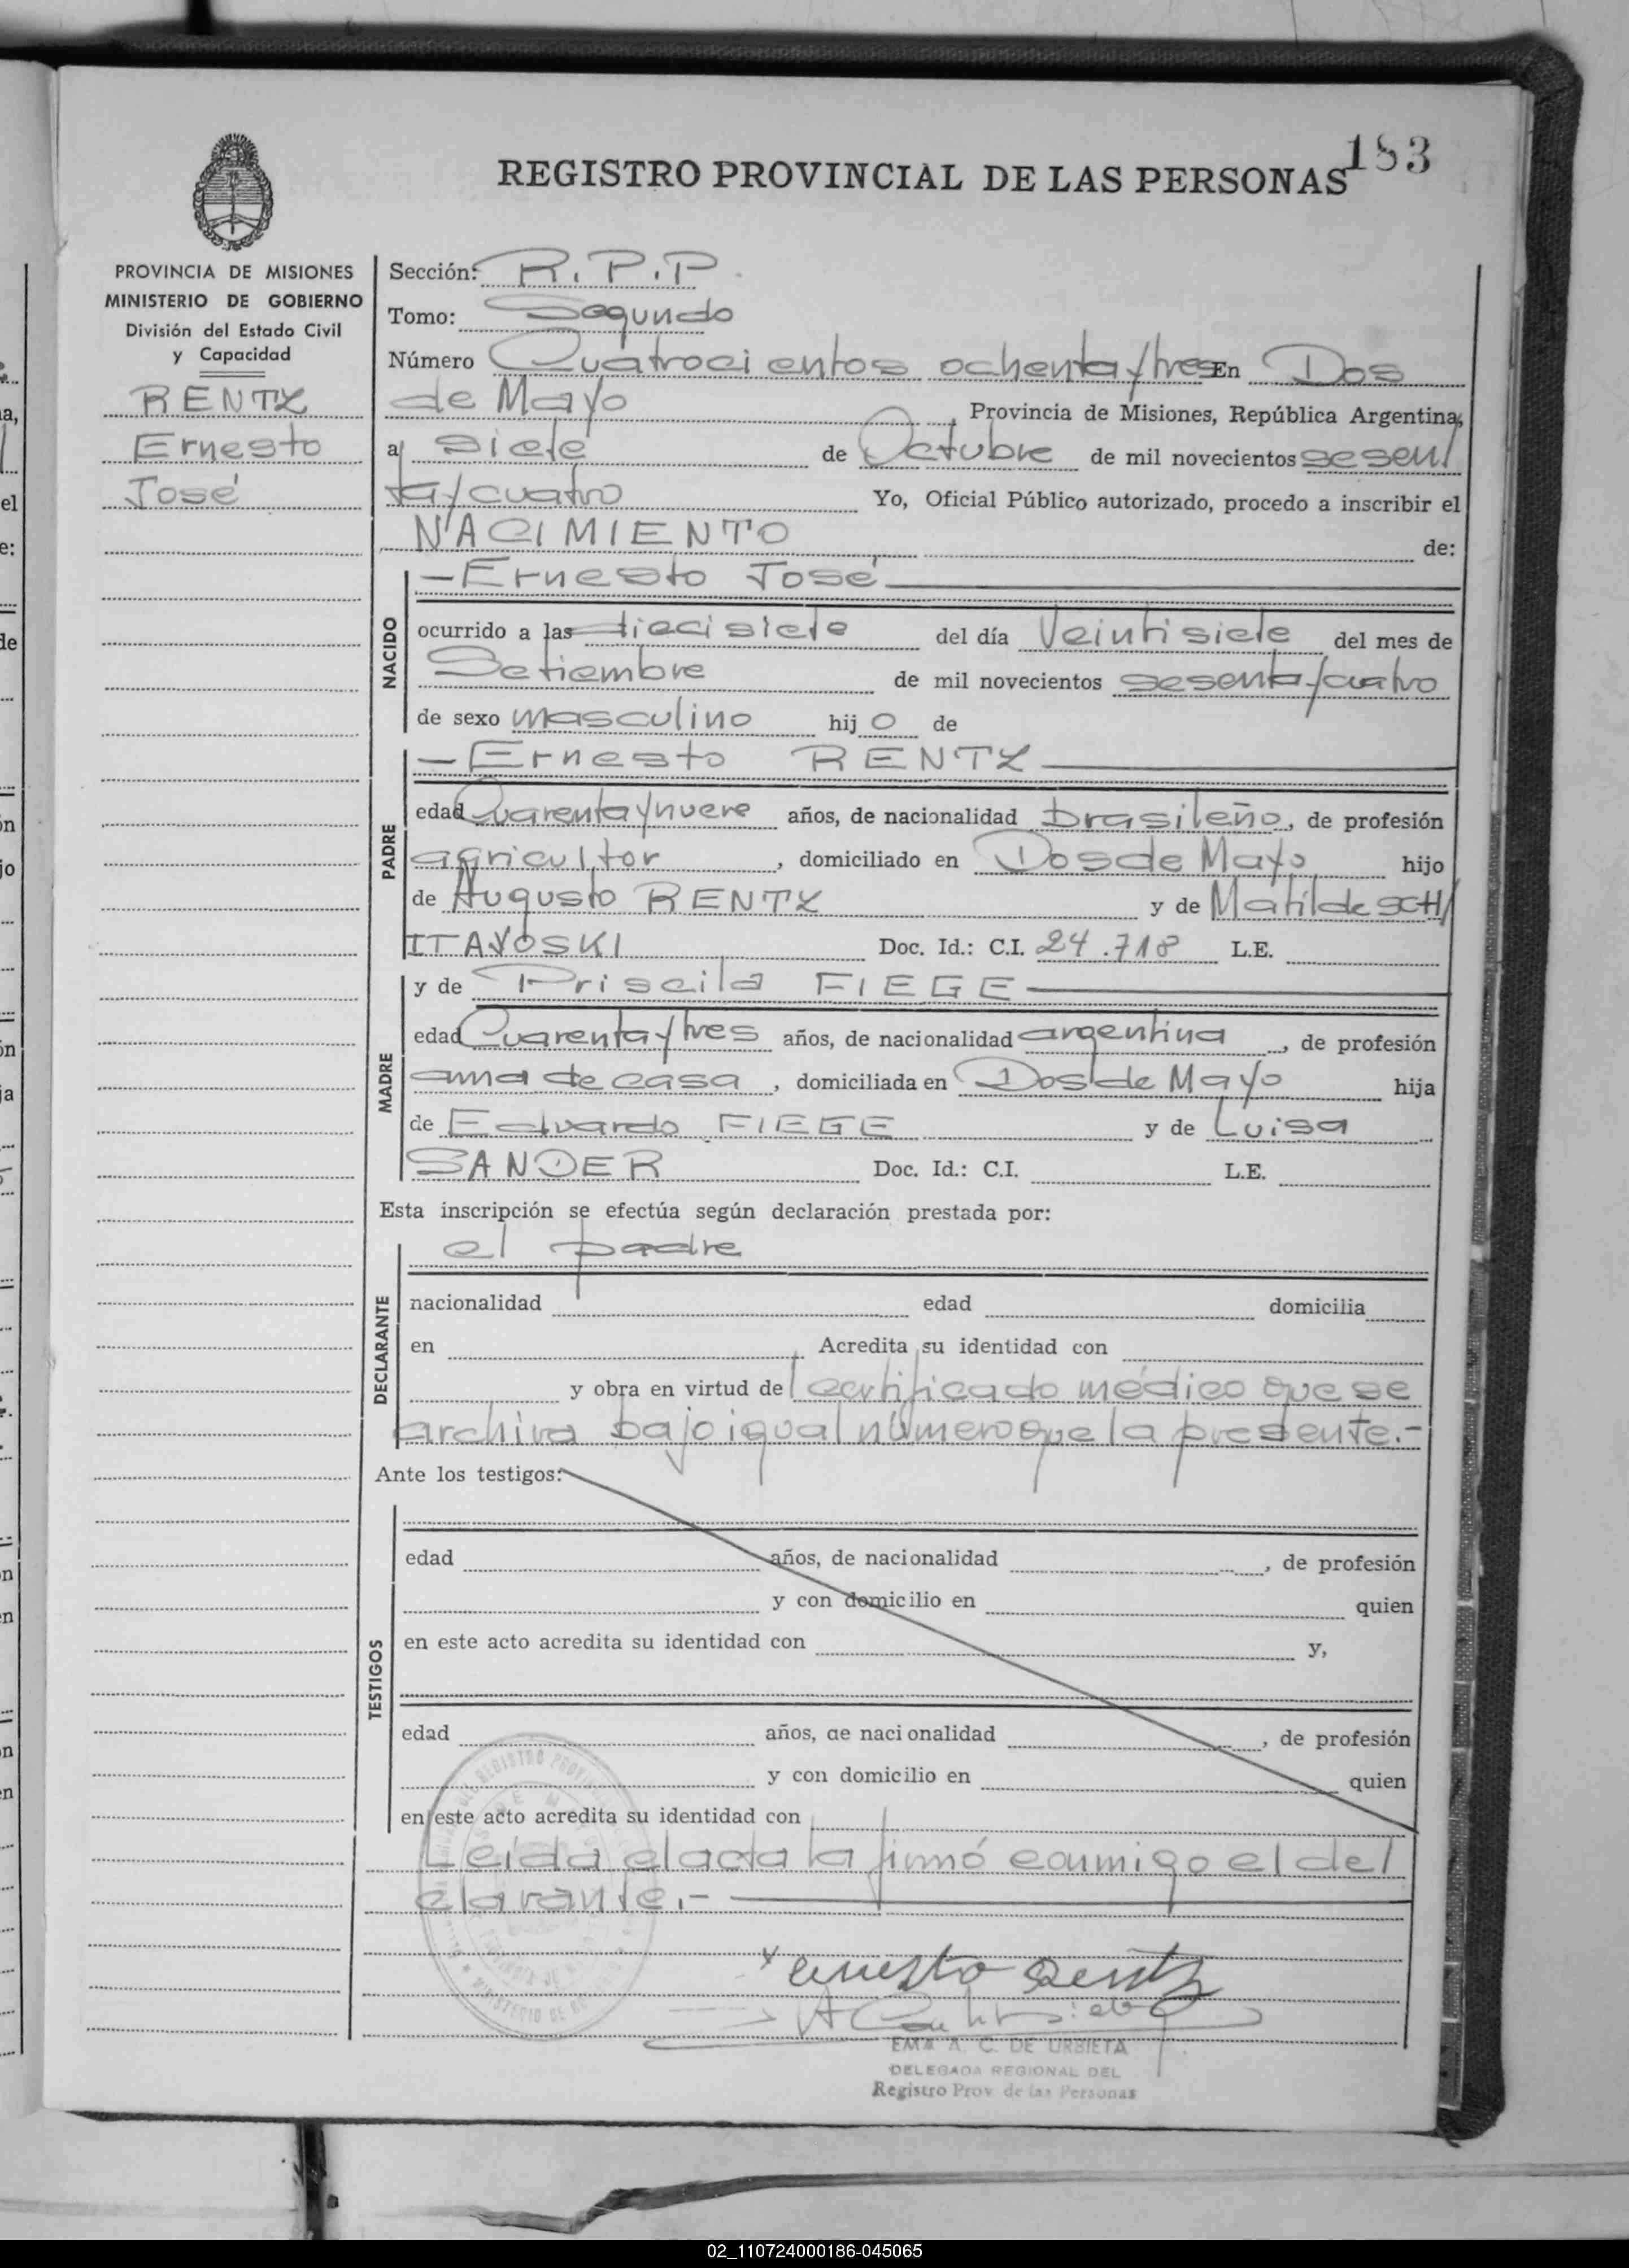 183
REGISTRO PROVINCIAL DE LAS PERSONAS
PROVINCIA DE MISIONES
MINISTERIO DE GOBIERNO
División del Estado Civil
y Capacidad
RENTZ
Ernesto
José
Sección: R.P.P.
Tomo: Segundo
Número Cuatrocientos ochenta y tres En Dos
de Mayo, Provincia de Misiones, República Argentina,
a siete de Octubre de mil novecientos sesen/
ta y cuatro Yo, Oficial Público autorizado, procedo a inscribir el
NACIMIENTO de:
NACIDO
—Ernesto José—
ocurrido a las diecisiete del día Veintisiete del mes de
Setiembre de mil novecientos sesenta y cuatro
de sexo masculino hijo de
PADRE
—Ernesto RENTZ—
edad Cuarenta y nueve años, de nacionalidad brasileño, de profesión
agricultor, domiciliado en Dos de Mayo hijo
de Augusto RENTZ y de Matilde SCH/
ITAVOSKI Doc. Id.: C.I. 24.718 L.E.
MADRE
y de Priscila FIEGE—
edad Cuarenta y tres años, de nacionalidad argentina, de profesión
ama de casa, domiciliada en Dos de Mayo hija
de Eduardo FIEGE y de Luisa
SANDER Doc. Id.: C.I. L.E.
Esta inscripción se efectúa según declaración prestada por:
DECLARANTE
el padre
nacionalidad edad domicilia
en Acredita su identidad con
y obra en virtud del certificado médico que se
archiva bajo igual número que la presente.-
Ante los testigos:
TESTIGOS
edad años, de nacionalidad, de profesión
y con domicilio en quien
en este acto acredita su identidad con y,
edad años, de nacionalidad, de profesión
y con domicilio en quien
en este acto acredita su identidad con
Leida el acta la firmó conmigo el del
clarante.-
ernesto Rentz
EMA A. C. DE URBIETA
DELEGADA REGIONAL DEL
Registro Prov. de las Personas
02_110724000186-045065